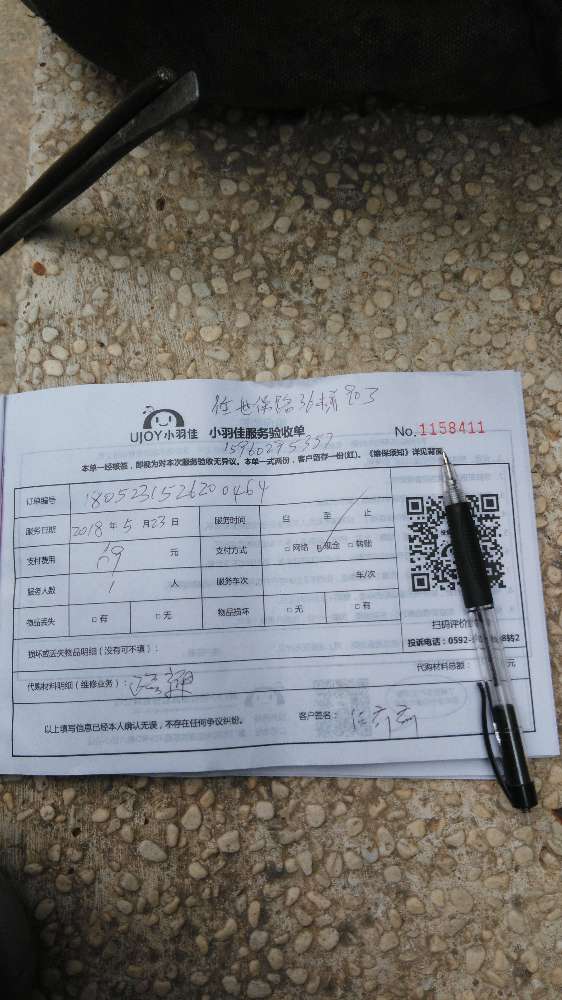 UJOY小羽佳 小羽佳服务验收单 No.1158411
15960295352
本单一经核签，即视为对本次服务验收无异议。本单一式两份，客户留存一份(红)。《维保须知》详见背面
订单编号 1805231526200464
服务日期 2018年5月23日 服务时间 自 至 止
支付费用 元 支付方式 □网络 □现金 □转账
服务人数 1 人 服务车次 车/次
物品丢失 □有 □无 物品损坏 □无 □有
扫码评价
损坏或丢失物品明细（没有可不填）：
投诉电话：0592- 8转2
代购材料明细（维修业务）： 代购材料总额： 元
以上填写信息已经本人确认无误，不存在任何争议纠纷。 客户签名：